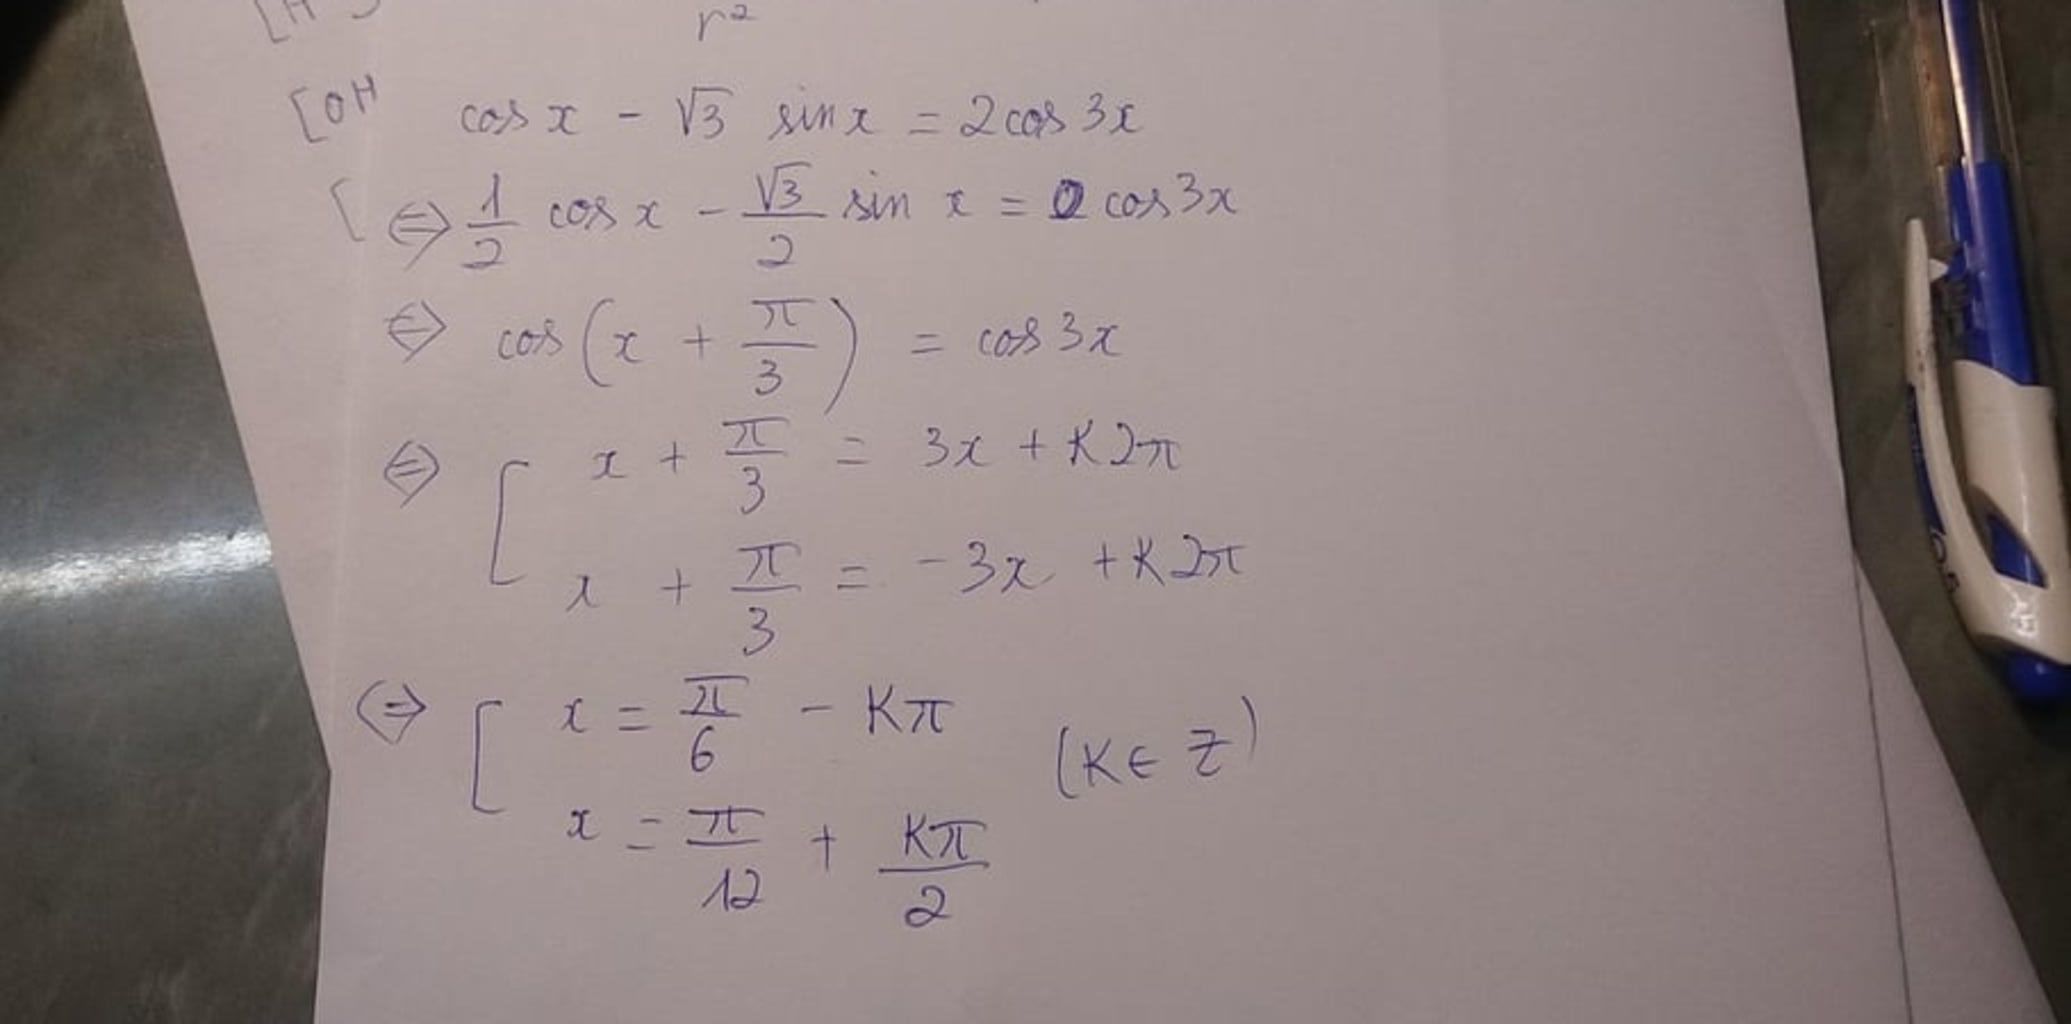 r²
[OH
cos x - √3 sin x = 2 cos 3x
[ ⇔ 1/2 cos x - √3/2 sin x = cos 3x
⇔ cos(x + π/3) = cos 3x
⇔ [ x + π/3 = 3x + K2π
x + π/3 = -3x + K2π
⇔ [ x = π/6 - Kπ
(K ∈ Z)
x = π/12 + Kπ/2